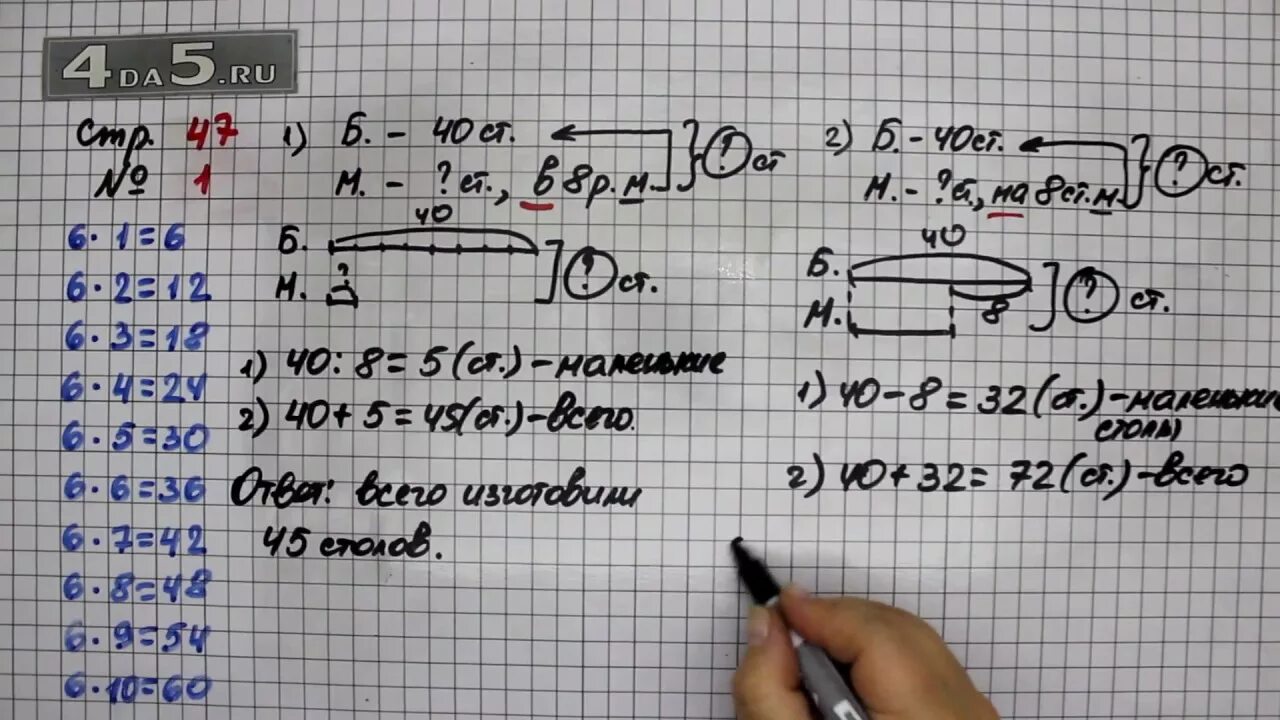 4DA5.RU
Стр. 47
№ 1
6·1=6
6·2=12
6·3=18
6·4=24
6·5=30
6·6=36
6·7=42
6·8=48
6·9=54
6·10=60
1) Б. - 40 ст.
М. - ? ст., в 8 р. м.
? ст
40
Б.
М. ?
? ст.
1) 40 : 8 = 5 (ст.) - маленькие
2) 40 + 5 = 45 (ст.) - всего.
Ответ: всего изготовили
45 столов.
2) Б. - 40 ст.
М. - ? ст., на 8 ст. м.
? ст.
40
Б.
М.
8
? ст.
1) 40 - 8 = 32 (ст.) - маленькие
столы
2) 40 + 32 = 72 (ст.) - всего